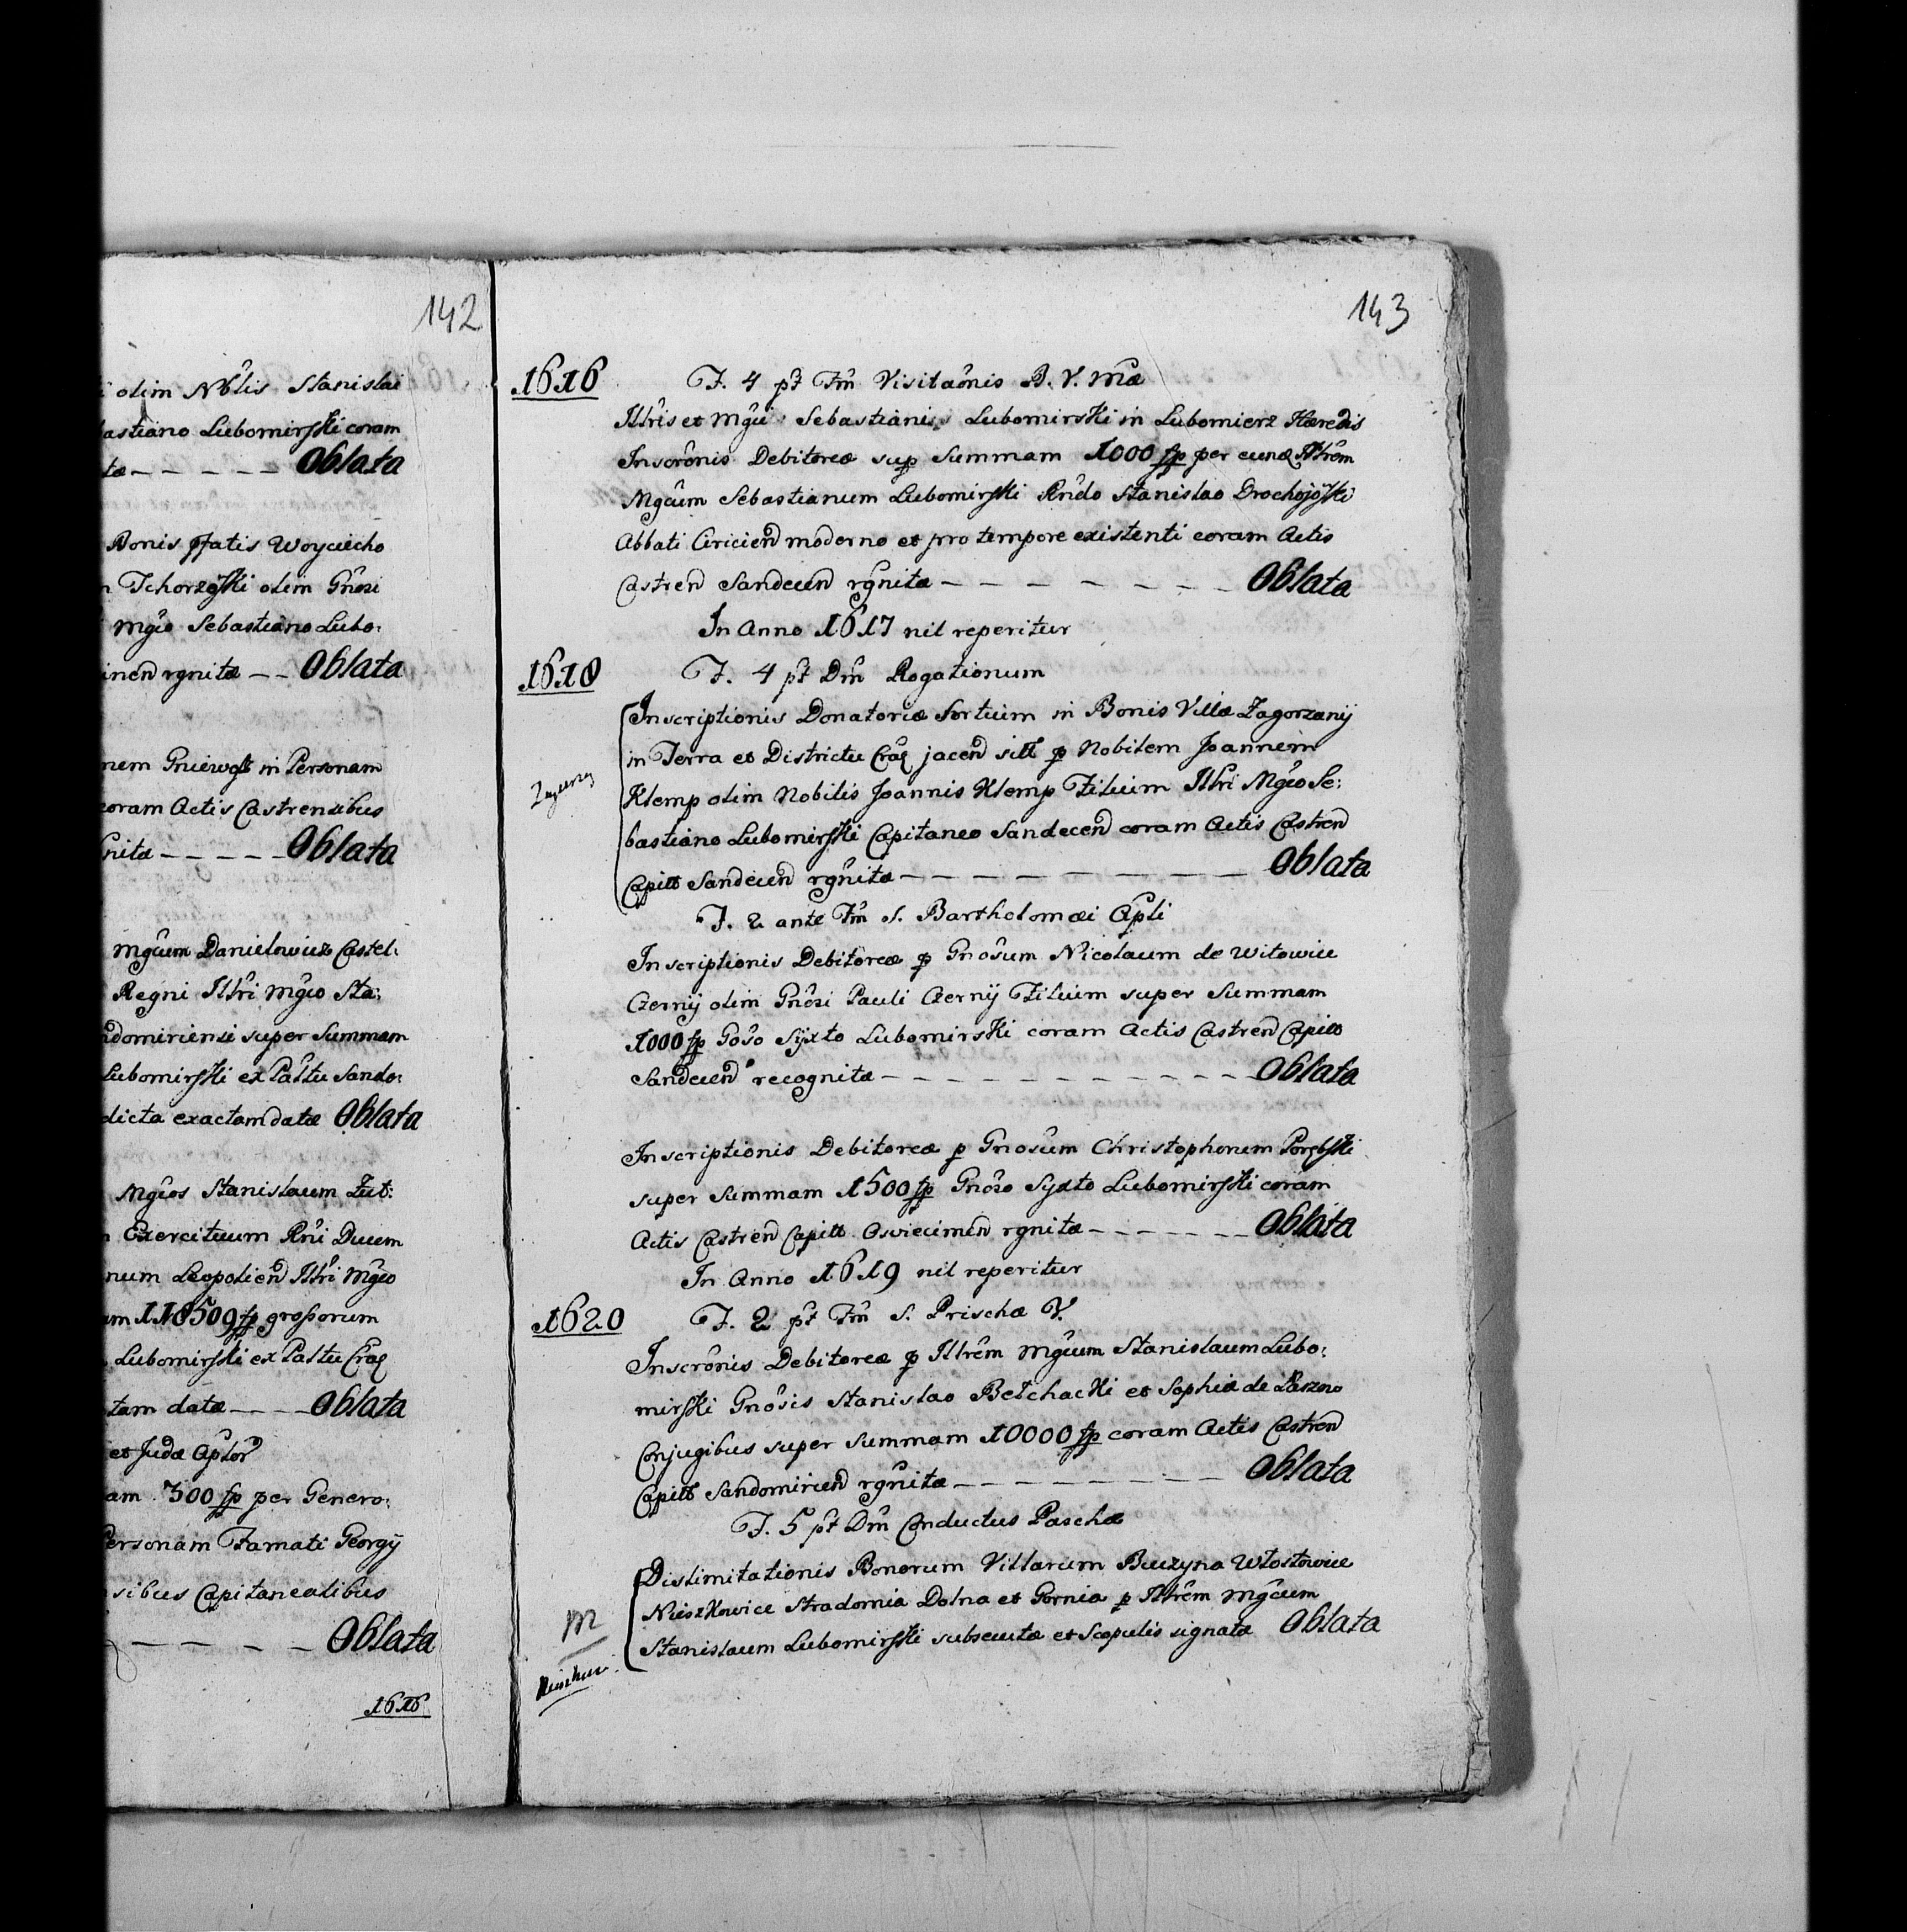 142
olim Nblis Stanislai
astiano Lubomirski coram
tæ – – – – – Oblata
Bonis pfatis Woyciecho
Tchorzojski olim Gnosi
Mgco Sebastiano Lubo:
inen rgnitæ – – Oblata
nem Gniewosz in Personam
coram Actis Castrensibus
gnitæ – – – – – Oblata
Mgcum Danielowicz Castel:
Regni Illri Mgco Sta:
ndomiriensi super Summam
Lubomirski ex Paltu Sando:
dicta exactam datæ Oblata
Mgcos Stanislaum Żuł:
Exercituum Rni Ducem
num Leopolien Illri Mgco
am 118509 fp grossorum
Lubomirski ex Paltu Crac
tam datæ – – – – Oblata
et Judæ Aplor
am 300 fp per Genero:
Personam Famati Georgij
sibus Capitanealibus
– – – – – Oblata
1616
143
1616 F. 4 pt Fm Visitaonis B. V. Mæ
Illris et Mgci Sebastiani Lubomirski in Lubomierz Hæredis
Inscronis Debitoreæ sup Summam 1000 fp per eunq Illrem
Mgcum Sebastianum Lubomirski Rndo Stanislao Drochojoski
Abbati Ciricien moderno et pro tempore existenti coram Actis
Castren Sandecen rgnitæ – – – – – – – Oblata
In Anno 1617 nil reperitur
1618 F. 4 pt Dm Rogationum
Inscriptionis Donatoriæ Sortium in Bonis Villæ Zagorzanij
in Terra et Districtu Crac jacen sitt p Nobilem Joannem
Klemp olim Nobilis Joannis Klemp Filium Illri Mgco Se:
bastiano Lubomirski Capitaneo Sandecen coram Actis Castren
Capitt Sandecen rgnitæ – – – – – – – – – Oblata
F. 2 ante Fm S. Bartholomæi Apli
Inscriptionis Debitoreæ p Gnosum Nicolaum de Witowice
Czernij olim Gnosi Pauli Czernij Filium super Summam
1000 fp Goso Sijxto Lubomirski coram Actis Castren Capitt
Sandecen recognitæ – – – – – – – – – – – – Oblata
Inscriptionis Debitoreæ p Gnosum Christophorum Porębski
super Summam 1500 fp Gnoso Syxto Lubomirski coram
Actis Castren Capitt Osviecimen rgnitæ – – – – – – Oblata
In Anno 1619 nil reperitur
1620 F. 2 pt Fm S. Prischæ V.
Inscronis Debitoreæ p Illrem Mgcum Stanislaum Lubo:
mirski Gnosis Stanislao Betchacki et Sophiæ de
Conjugibus super Summam 10000 fp coram Actis Castren
Capitt Sandomirien rgnitæ – – – – – – – – Oblata
F. 5 pt Dm Conductus Paschæ
Dislimitationis Bonorum Villarum Buczyna Wlostowice
Nieszkowice Stradomia Dolna et Gornia p Illrem Mgcum
Stanislaum Lubomirski subsecutæ et Scopulis signatæ Oblata